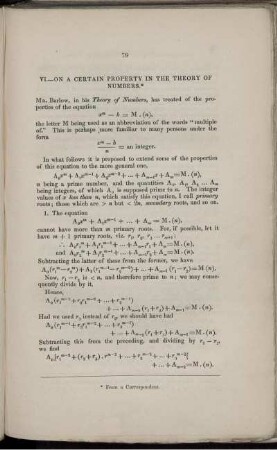 79
VI.—ON A CERTAIN PROPERTY IN THE THEORY OF
NUMBERS.*
MR. BARLOW, in his Theory of Numbers, has treated of the pro-
perties of the equation
xᵐ − b = M . (n),
the letter M being used as an abbreviation of the words “multiple
of.” This is perhaps more familiar to many persons under the
form
(xᵐ − b)/n = an integer.
In what follows it is proposed to extend some of the properties
of this equation to the more general one,
A₀xᵐ + A₁xᵐ⁻¹ + A₂xᵐ⁻² + ... + Aₘ₋₁x + Aₘ = M . (n),
n being a prime number, and the quantities A₀, A₁, A₂ ... Aₘ
being integers, of which A₀ is supposed prime to n. The integer
values of x less than n, which satisfy this equation, I call primary
roots; those which are > n but < 2n, secondary roots, and so on.
1. The equation
A₀xᵐ + A₁xᵐ⁻¹ + ... + Aₘ = M . (n),
cannot have more than m primary roots. For, if possible, let it
have m + 1 primary roots, viz. r₁, r₂, r₃ ... rₘ₊₁:
∴ A₀r₁ᵐ + A₁r₁ᵐ⁻¹ + ... + Aₘ₋₁r₁ + Aₘ = M . (n),
and A₀r₂ᵐ + A₁r₂ᵐ⁻¹ + ... + Aₘ₋₁r₂ + Aₘ = M . (n).
Subtracting the latter of these from the former, we have
A₀(r₁ᵐ − r₂ᵐ) + A₁(r₁ᵐ⁻¹ − r₂ᵐ⁻¹) + ... + Aₘ₋₁(r₁ − r₂) = M . (n).
Now, r₁ − r₂ is < n, and therefore prime to n; we may conse-
quently divide by it.
Hence,
A₀(r₁ᵐ⁻¹ + r₂r₁ᵐ⁻² + ... + r₂ᵐ⁻¹)
+ ... + Aₘ₋₂(r₁ + r₂) + Aₘ₋₁ = M . (n).
Had we used r₃ instead of r₂, we should have had
A₀(r₁ᵐ⁻¹ + r₃r₁ᵐ⁻² + ... + r₃ᵐ⁻¹)
+ ... + Aₘ₋₂(r₁ + r₃) + Aₘ₋₁ = M . (n).
Subtracting this from the preceding, and dividing by r₂ − r₃,
we find
+ ... + Aₘ₋₂ = M . (n).
* From a Correspondent.